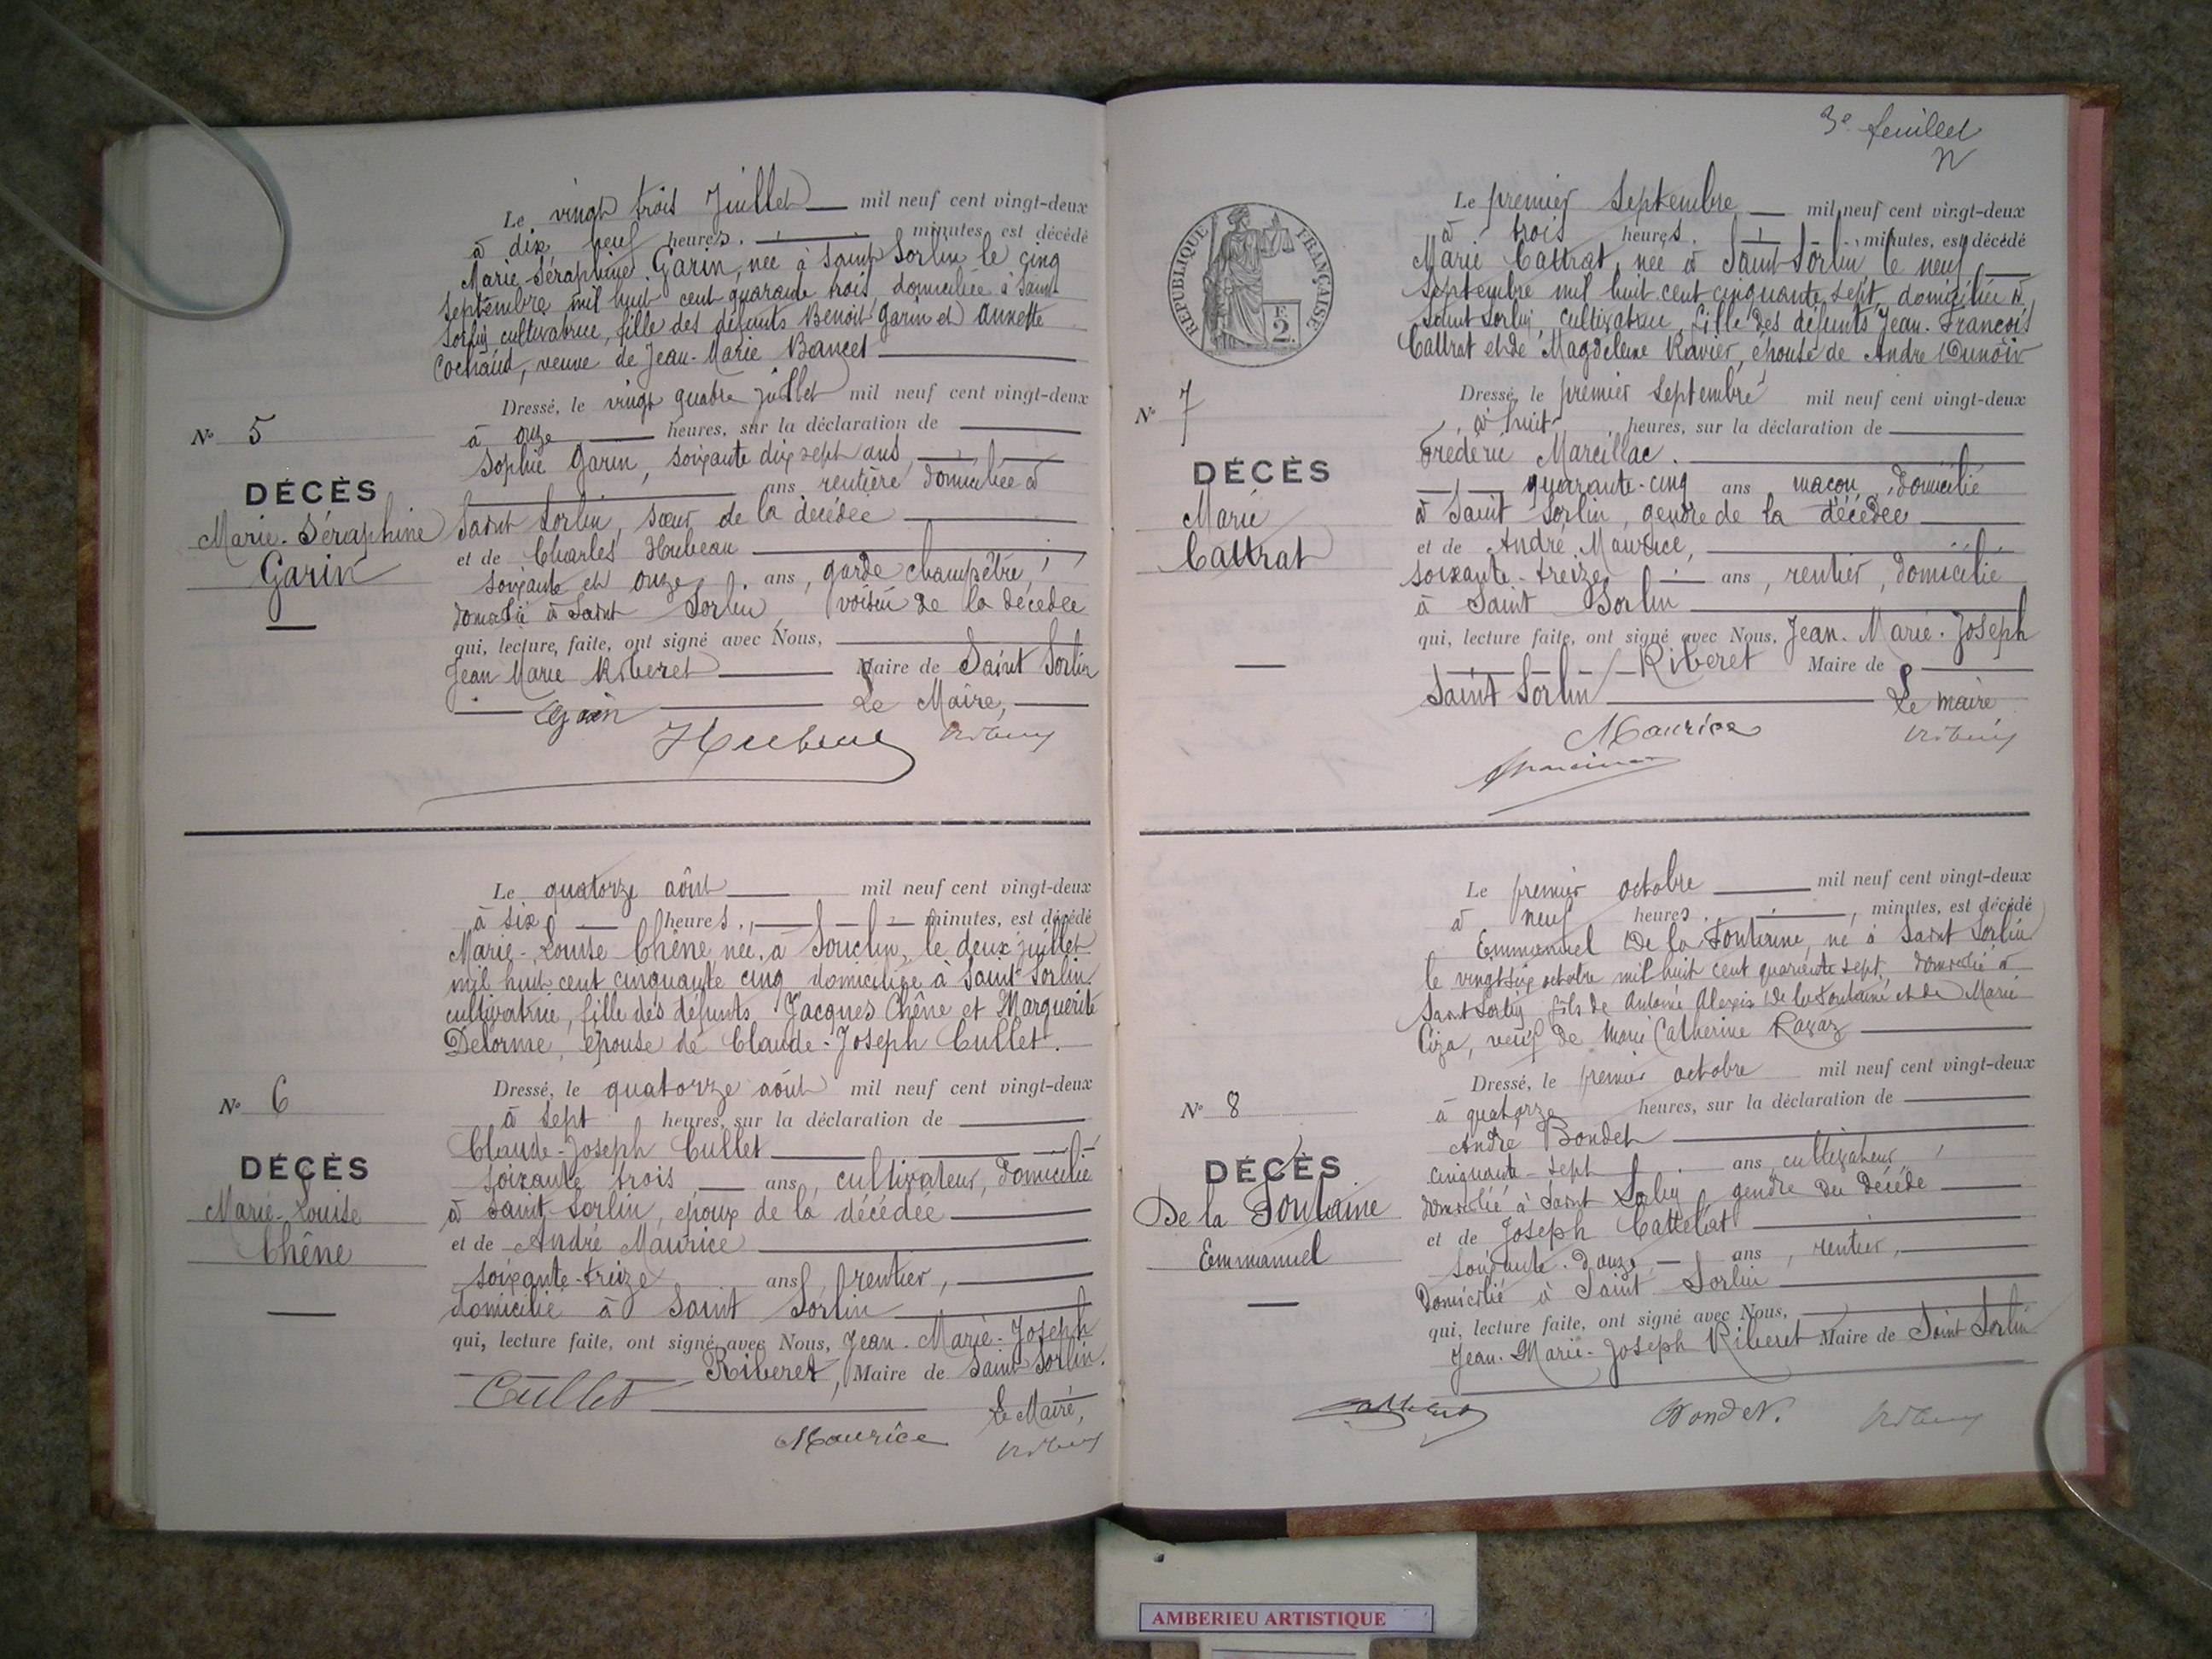 Le vingt trois Juillet mil neuf cent vingt-deux
à dix neuf heures. minutes, est décédé
Marie Séraphine Garin, née à Saint Sorlin le cinq
Septembre mil huit cent quarante trois, domiciliée à Saint
Sorlin cultivatrice, fille des défunts Benoit Garin et Annette
Cochaud, veuve de Jean-Marie Bancet
Dressé, le vingt quatre juillet mil neuf cent vingt-deux
à onze heures, sur la déclaration de
Sophie Garin, soixante dix sept ans,
ans rentière domiciliée à
Saint Sorlin, sœur de la décédée
et de Charles Hubeau
soixante et onze ans, garde champêtre,
domicilié à Saint Sorlin, voisin de la décédée
qui, lecture faite, ont signé avec Nous,
Jean Marie Riberet Maire de Saint Sorlin
Le Maire,
N° 5
DÉCÈS
Marie-Séraphine
Garin
Le quatorze août mil neuf cent vingt-deux
à six heures, minutes, est décédé
Marie-Louise Chêne née à Souclin, le deux juillet
mil huit cent cinquante cinq domiciliée à Saint Sorlin
cultivatrice, fille des défunts Jacques Chêne et Marguerite
Delorme, épouse de Claude-Joseph Cullet.
Dressé, le quatorze août mil neuf cent vingt-deux
à sept heures, sur la déclaration de
Claude-Joseph Cullet
soixante trois ans, cultivateur, domicilié
à Saint-Sorlin, époux de la décédée
et de André Maurice
soixante-treize ans, rentier,
domicilié à Saint Sorlin
qui, lecture faite, ont signé avec Nous, Jean-Marie-Joseph
Riberet, Maire de Saint Sorlin.
Cullet
Le Maire,
Maurice
N° 6
DÉCÈS
Marie-Louise
Chêne
3e feuillet
RÉPUBLIQUE FRANÇAISE
F
2.
Le premier Septembre mil neuf cent vingt-deux
à trois heures. minutes, est décédé
Marie Cattrat, née à Saint Sorlin le neuf
Septembre mil huit cent cinquante sept, domiciliée à
Saint Sorlin, cultivatrice, fille des défunts Jean-François
Cattrat et de Magdeleine Ravier, épouse de André Dunoir
Dressé, le premier Septembre mil neuf cent vingt-deux
à huit heures, sur la déclaration de
Frédéric Marcillac.
quarante-cinq ans maçon, domicilié
à Saint Sorlin, gendre de la décédée
et de André Maurice,
soixante-treize ans, rentier, domicilié
à Saint Sorlin
qui, lecture faite, ont signé avec Nous, Jean-Marie-Joseph
Riberet Maire de
Saint Sorlin Le maire
Maurice
N° 7
DÉCÈS
Marie
Cattrat
Le premier octobre mil neuf cent vingt-deux
à neuf heures, minutes, est décédé
Emmanuel De la Fontaine, né à Saint Sorlin
le vingt six octobre mil huit cent quarante sept, domicilié à
Saint Sorlin fils de Antoine Alexis De la Fontaine et de Marie
veuf de Marie Catherine
Dressé, le premier octobre mil neuf cent vingt-deux
à quatorze heures, sur la déclaration de
André Bondet
cinquante-sept ans cultivateur,
domicilié à Saint Sorlin gendre du décédé
et de Joseph Cattelat
soixante-douze ans, rentier,
domicilié à Saint Sorlin
qui, lecture faite, ont signé avec Nous,
Jean-Marie-Joseph Riberet Maire de Saint Sorlin
Bondet.
N° 8
DÉCÈS
De la Fontaine
Emmanuel
AMBERIEU ARTISTIQUE